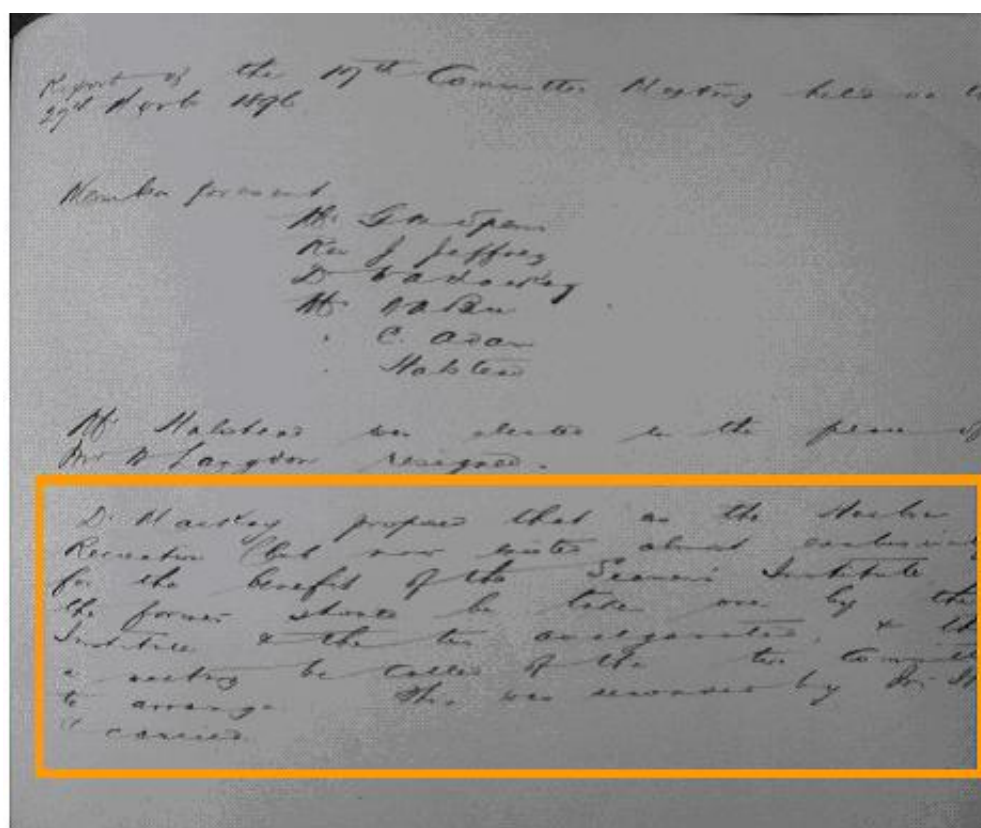 Report of the 17th Committee Meeting held on
29th March 1896
Members present
Mr.
Rev J Jeffrey
D
Mr.
C. Adam
Halstead
Mr Halstead was elected in the place of
Mr Langdon resigned.
Dr Mackey proposed that as the
Recreation Club now exists almost exclusively
for the benefit of the Seamen's Institute
the former should be taken over by the
Institute & the two amalgamated, &
a meeting be called of the two
to arrange. This was seconded by Mr
& carried.